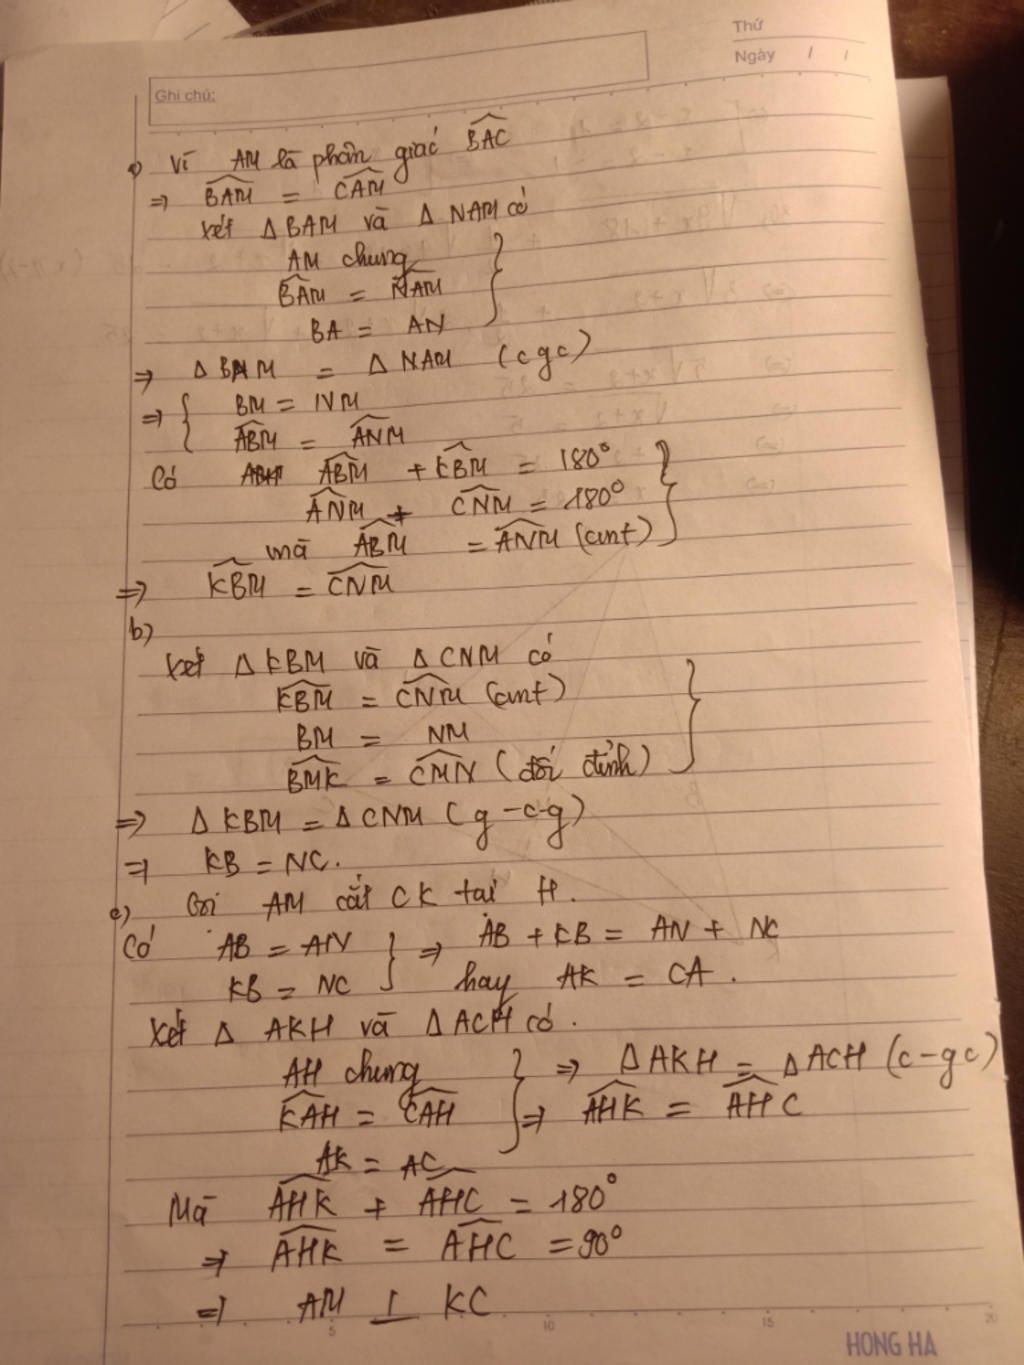 Thứ
Ngày / /
Ghi chú:
a) Vì AM là phân giác \widehat{BAC}
⇒ \widehat{BAM} = \widehat{CAM}
Xét Δ BAM và Δ NAM có
AM chung
\widehat{BAM} = \widehat{NAM}
BA = AN
⇒ Δ BAM = Δ NAM (cgc)
⇒ { BM = NM
\widehat{ABM} = \widehat{ANM}
Có \widehat{ABM} + \widehat{KBM} = 180°
\widehat{ANM} + \widehat{CNM} = 180°
mà \widehat{ABM} = \widehat{ANM} (cmt)
⇒ \widehat{KBM} = \widehat{CNM}
b)
Xét Δ KBM và Δ CNM có
\widehat{KBM} = \widehat{CNM} (cmt)
BM = NM
\widehat{BMK} = \widehat{CMN} (đối đỉnh)
⇒ Δ KBM = Δ CNM (g-c-g)
⇒ KB = NC.
c) Gọi AM cắt CK tại H.
Có AB = AN } ⇒ AB + KB = AN + NC
KB = NC hay AK = CA.
Xét Δ AKH và Δ ACH có.
AH chung } ⇒ Δ AKH = Δ ACH (c-gc)
\widehat{KAH} = \widehat{CAH} ⇒ \widehat{AHK} = \widehat{AHC}
AK = AC
Mà \widehat{AHK} + \widehat{AHC} = 180°
⇒ \widehat{AHK} = \widehat{AHC} = 90°
⇒ AM ⊥ KC
5 10 15 20
HONG HA